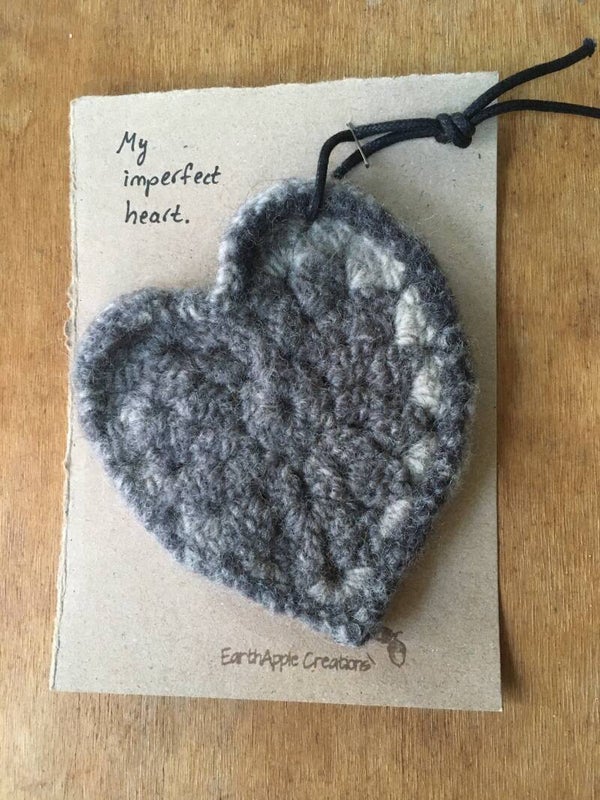 My
imperfect
heart.
EarthApple Creations